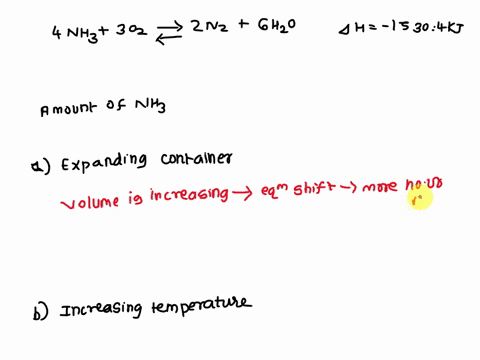 4 NH3 + 3O2 ⇌ 2N2 + 6H2O ΔH = -1530.4KJ
Amount of NH3
a) Expanding container
Volume is increasing → eqm shift → more no.
b) Increasing temperature